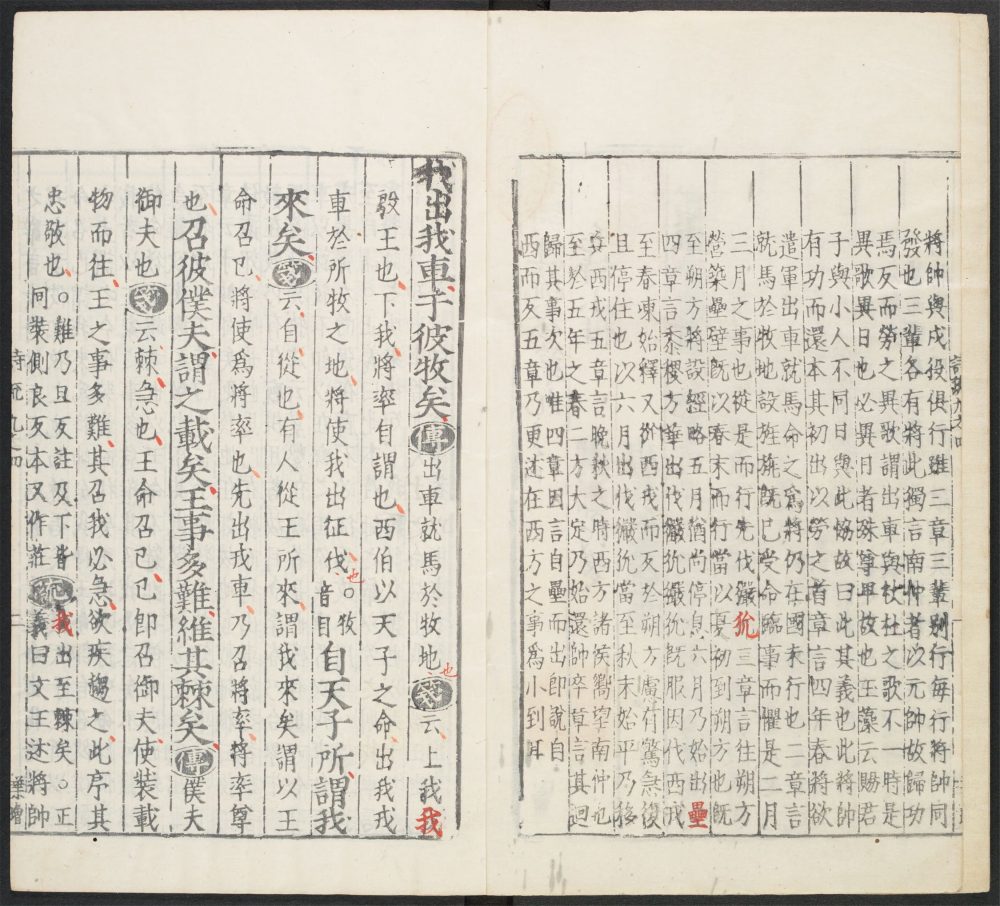 將帥與戍役俱行雖三章三輩別行每行將帥同
發也三輩各有將此獨言南仲者以元帥故歸功
焉反而勞之異歌謂出車與杕杜之歌不一時是
異歌異日也必異日者殊尊卑故也玉藻云賜君
子與小人不同日與此協故曰此其義也此將帥
有功而還本其初出以勞之首章言四年春將欲
遣軍出車就馬命之爲將仍在國未行也二章言
就馬於牧地設旌旐旣已受命臨事而懼是二月
三月之事也從是而行先伐玁狁三章言往朔方
營築壘壁旣以春末而行當以夏初到朔方也旣
至朔方將設經略五月猶尚停息六月乃始出壘
四章言黍稷方華出伐玁狁玁狁旣服因伐西戎
至春凍始釋又從西戎而反於朔方慮有驚急復
且停住也以六月出伐玁狁當至秋末始平乃移
兵西戎五章言晚秋之時西方諸侯嚮望南仲也
至於五年之春二方大定乃始還師卒章言其迴
歸其事次也惟四章因言自壘而出卽說自
西而反五章乃更述在西方之事爲小到耳
我出我車于彼牧矣傳出車就馬於牧地也箋云上我我
殷王也下我將率自謂也西伯以天子之命出我戎
車於所牧之地將使我出征伐也○牧音目自天子所謂我
來矣箋云自從也有人從王所來謂我來矣謂以王
命召已將使爲將率也先出戎車乃召將率將率尊
也召彼僕夫謂之載矣王事多難維其棘矣傳僕夫
御夫也箋云棘急也王命召已已卽召御夫使裝載
物而往王之事多難其召我必急欲疾趨之此序其
忠敬也○難乃旦反註及下皆同裝側良反本又作莊疏我出至棘矣○正義曰文王述將帥
詩疏九之四
二